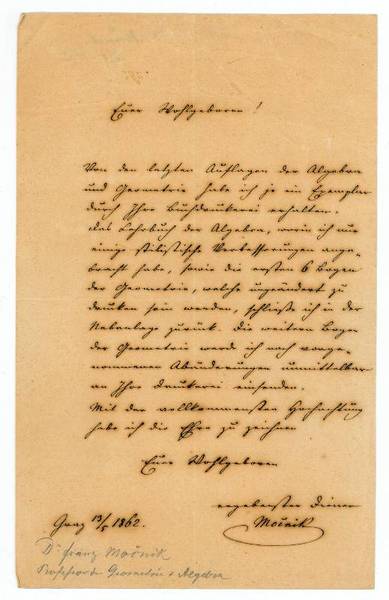 Euer Wohlgeboren!
Von den letzten Auflagen der Algebra
und Geometrie habe ich je ein Exemplar
durch Ihre Buchdrukerei erhalten.
Das Lehrbuch der Algebra, worin ich nur
einige stilistische Verbesserungen ange-
bracht habe, sowie die ersten 6 Bogen
der Geometrie, welche ungeändert zu
druken sein werden, schließe ich in der
Nebenlage zurück. Die weitern Bogen
der Geometrie werde ich nach vorge-
nommenen Abänderungen unmittelbar
an Ihre Drukerei einsenden.
Mit der vollkommensten Hochachtung
habe ich die Ehre zu zeichnen
Euer Wohlgeboren
ergebenster Diener
Močnik
Graz 13/5 1862.
Dr Franz Močnik
Professor der Geometrie u Algebra